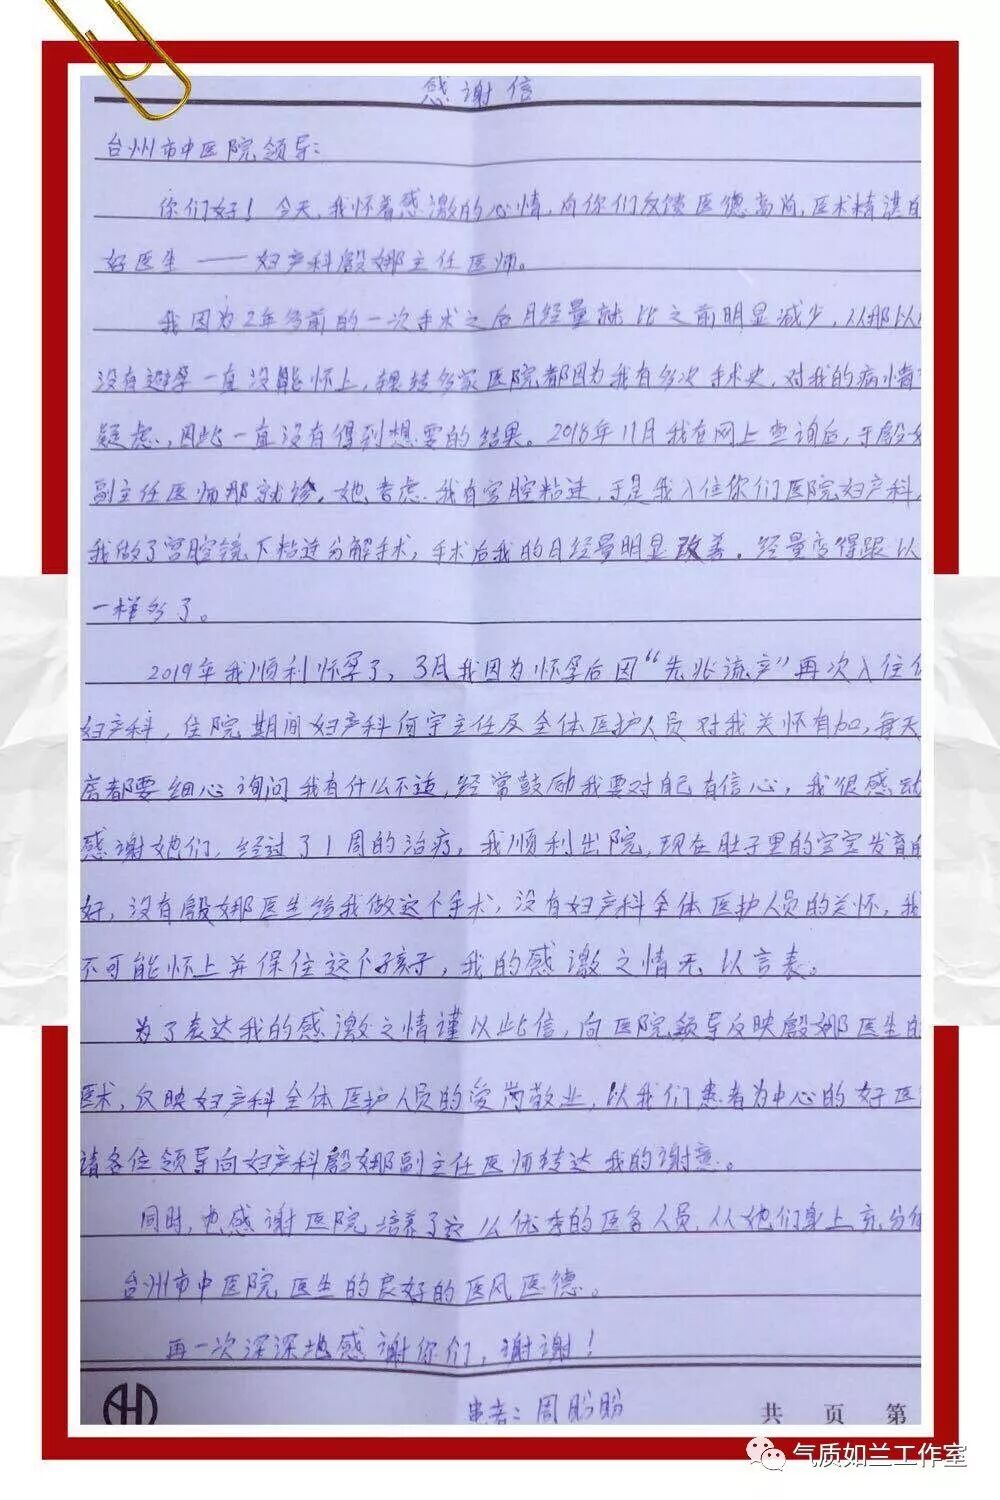 感谢信
台州市中医院领导：
你们好！今天，我怀着感激的心情，向你们反馈医德高尚，医术精湛的
好医生——妇产科殷娜主任医师。
我因为2年多前的一次手术之后月经量就比之前明显减少，从那以
没有避孕一直没能怀上，辗转多家医院都因为我有多次手术史，对我的病情
疑虑，因此一直没有得到想要的结果。2018年11月我在网上查询后，于殷
副主任医师那就诊，她考虑我有宫腔粘连，于是我入住你们医院妇产科，
我做了宫腔镜下粘连分解手术，手术后我的月经量明显改善，经量变得跟以
一样多了。
2019年我顺利怀孕了，3月我因为怀孕后因“先兆流产”再次入住
妇产科，住院期间妇产科何宇主任及全体医护人员对我关怀有加，每天
房都要细心询问我有什么不适，经常鼓励我要对自己有信心，我很感动
感谢她们，经过了1周的治疗，我顺利出院，现在肚子里的宝宝发育的
好，没有殷娜医生给我做这个手术，没有妇产科全体医护人员的关怀，我
不可能怀上并保住这个孩子，我的感激之情无以言表。
为了表达我的感激之情谨以此信，向医院领导反映殷娜医生的
医术，反映妇产科全体医护人员的爱岗敬业，以我们患者为中心的好医
请各位领导向妇产科殷娜副主任医师转达我的谢意。
同时，也感谢医院培养了这么优秀的医务人员，从她们身上充分
台州市中医院医生的良好的医风医德。
再一次深深地感谢你们，谢谢！
患者：周盼盼
共 页 第
气质如兰工作室